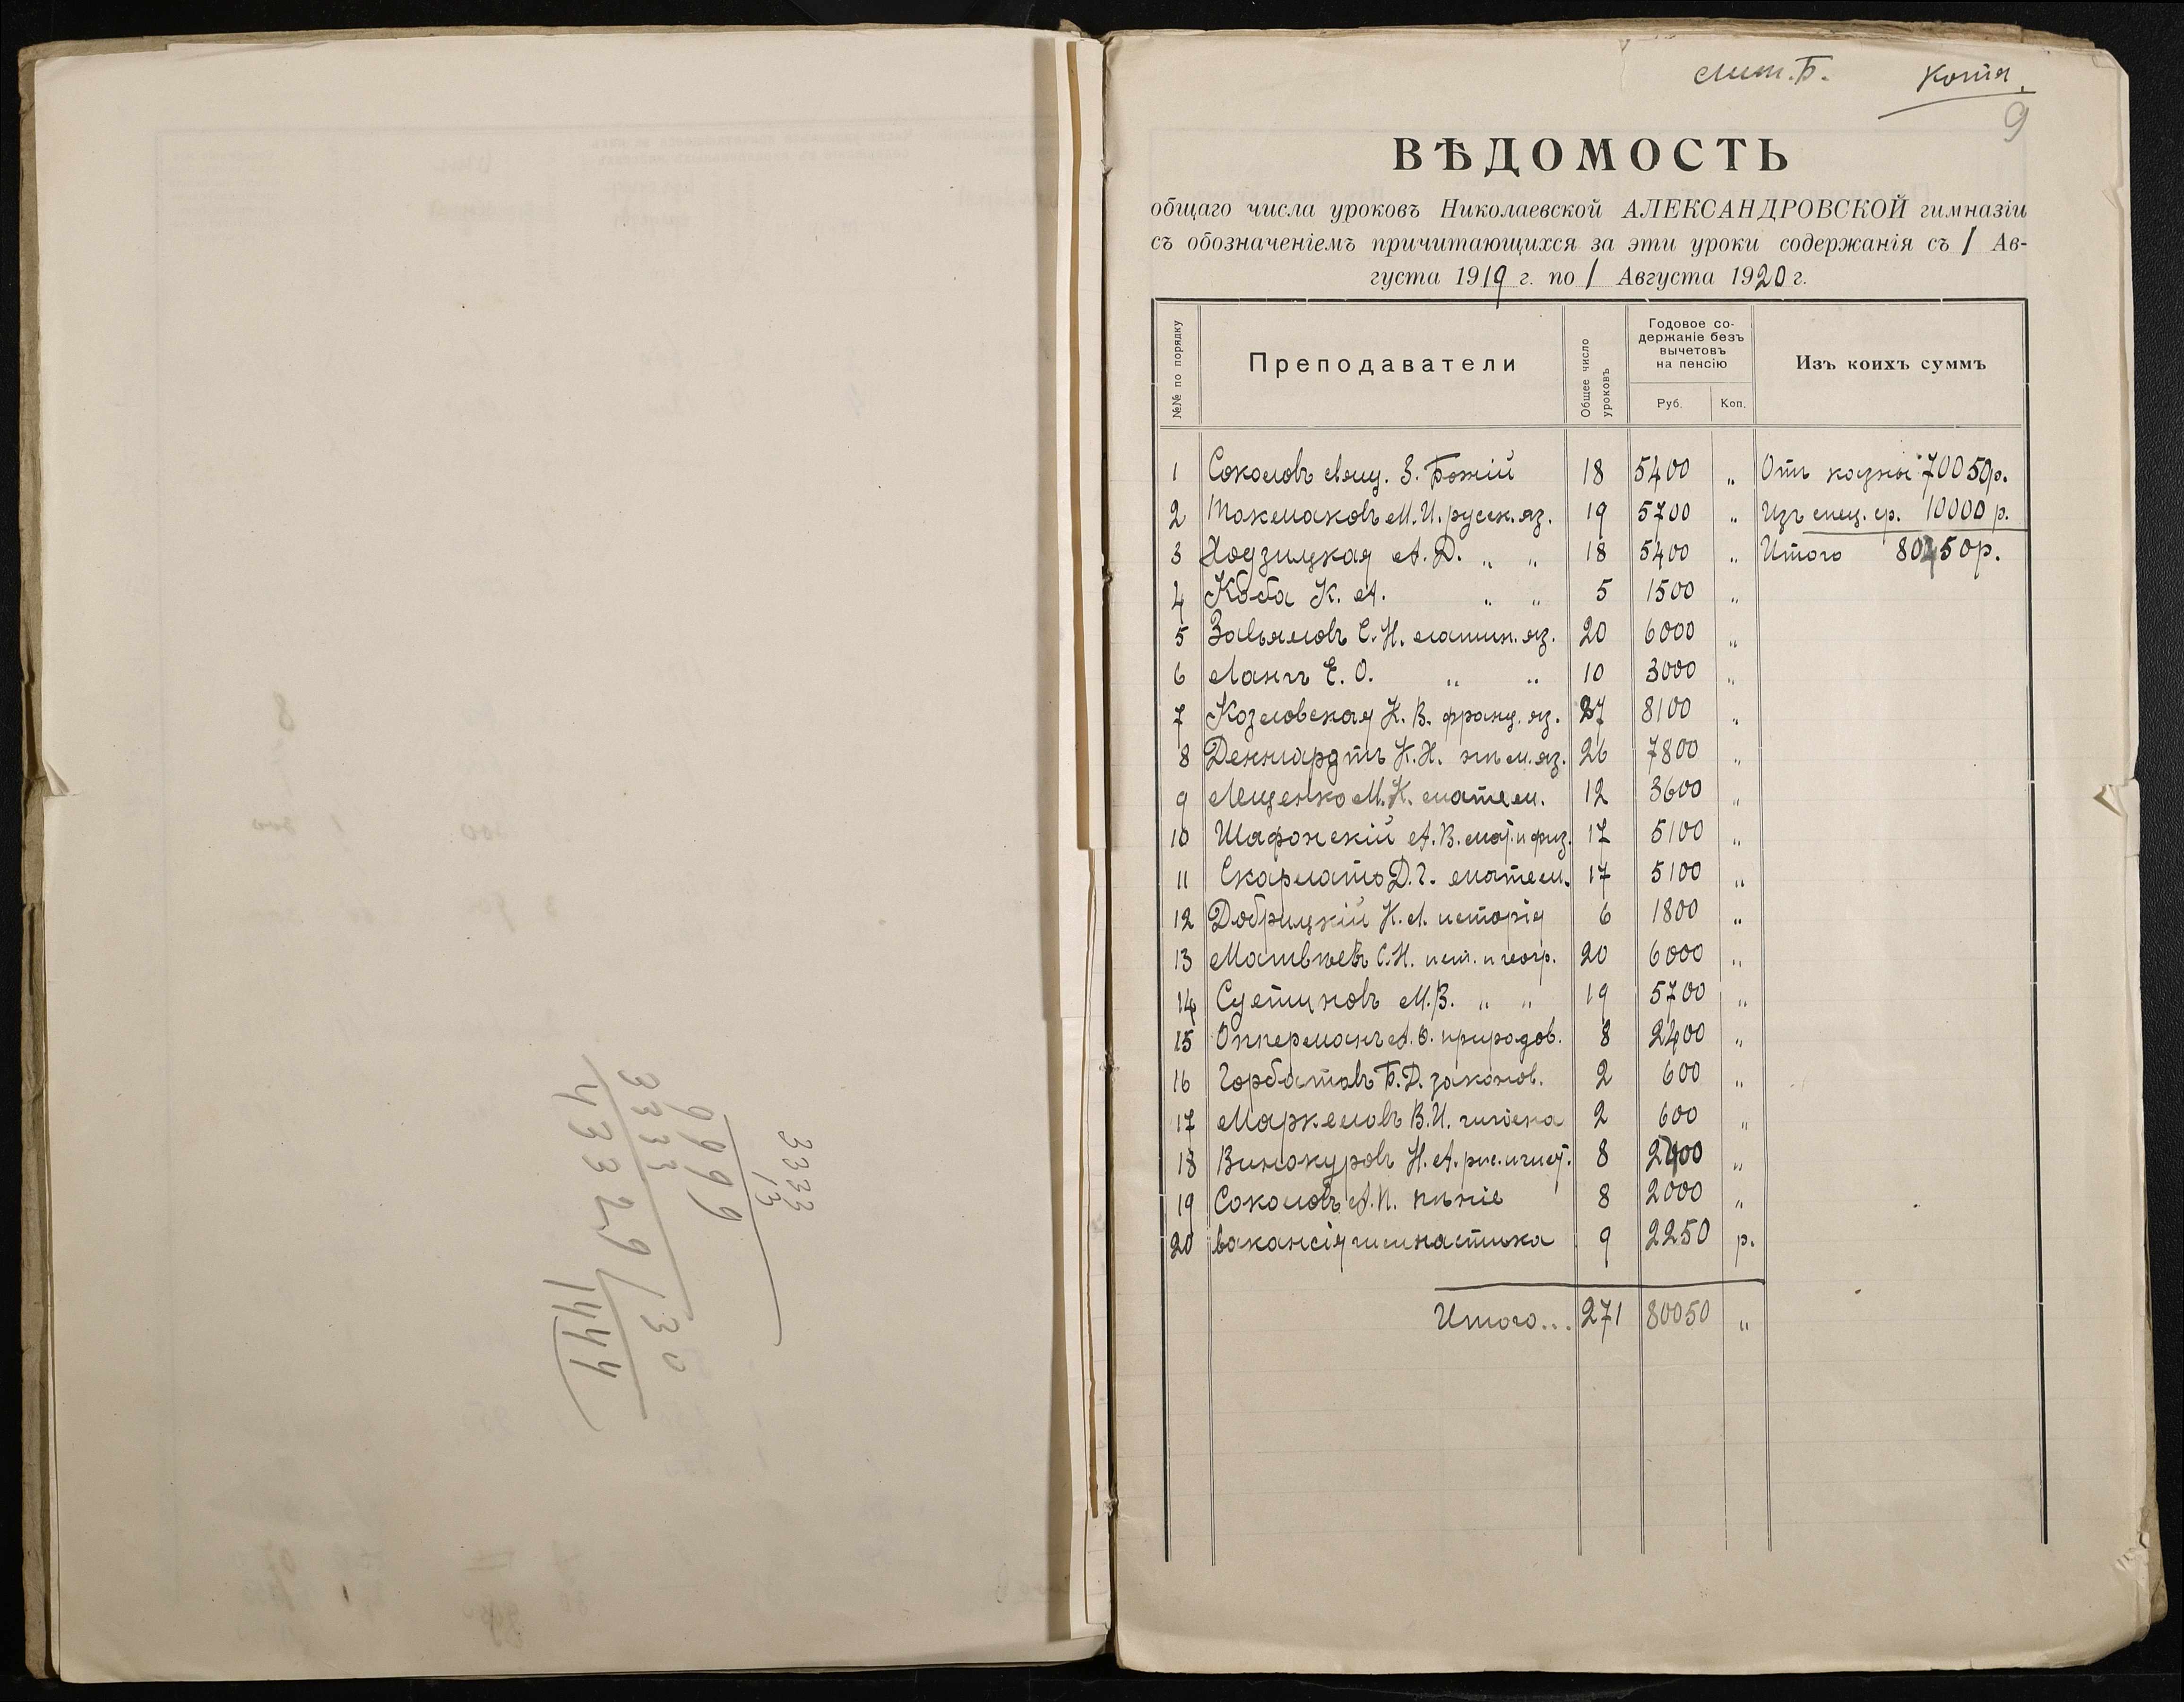 Лит. Б. Копія.
9
ВѢДОМОСТЬ
общаго числа уроковъ Николаевской АЛЕКСАНДРОВСКОЙ гимназіи
съ обозначеніемъ причитающихся за эти уроки содержанія съ 1 Ав-
густа 1919 г. по 1 Августа 1920 г.
№№ по порядку
Преподаватели
Общее число уроковъ
Годовое со-
держаніе безъ
вычетовъ
на пенсію
Руб. Коп.
Изъ коихъ суммъ
1 Соколовъ свящ. З. Божій 18 5400 „ Отъ казны 70050р.
2 Токмаковъ М. И. русск. яз. 19 5700 „ Изъ спец. ср. 10000 р.
3 Ходзицкая А. Д. „ „ 18 5400 „ Итого 80050р.
4 Коба К. А. „ „ 5 1500 „
5 Завьяловъ С. Н. латин. яз. 20 6000 „
6 Лангъ Е. О. „ „ 10 3000 „
7 Козловская К. В. франц. яз. 27 8100 „
8 Деннардтъ К. Н. нѣм. яз. 26 7800 „
9 Лещенко М. К. матем. 12 3600 „
10 Шафонскій А. В. мат. и физ. 17 5100 „
11 Скарлато Д. Г. матем. 17 5100 „
12 Добрицкій К. Л. исторія 6 1800 „
13 Матвѣевъ С. Н. ист. и геогр. 20 6000 „
14 Суетиновъ М. В. „ „ 19 5700 „
15 Опперманъ А. О. природов. 8 2400 „
16 Горбатовъ Б. Д. законов. 2 600 „
17 Маркеловъ В. И. гигіена 2 600 „
18 Винокуровъ Н. А. рис. и чист. 8 2400 „
19 Соколовъ А. П. пѣніе 8 2000 „
20 вакансія гимнастика 9 2250 р.
Итого... 271 80050 „
3333
3
9999
333
43329 / 30
1444